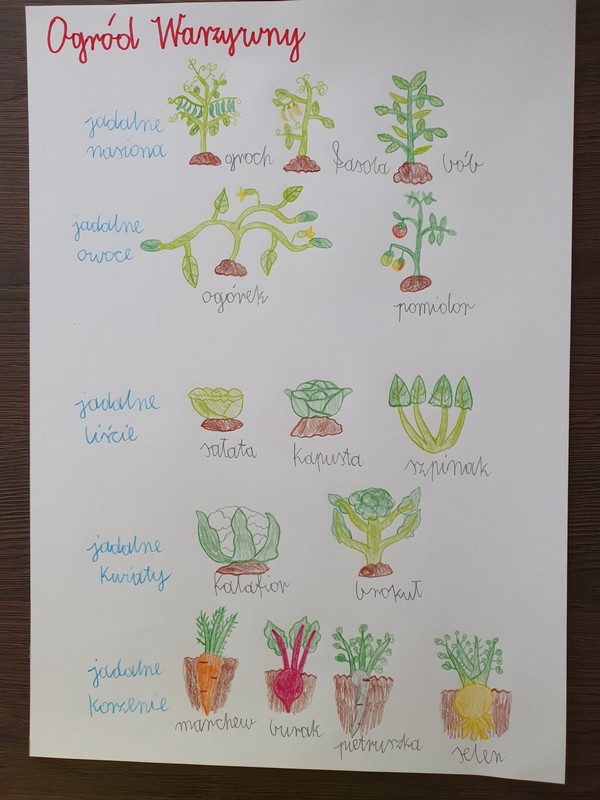 Ogród Warzywny
jadalne
nasiona
groch
fasola
bób
jadalne
owoce
ogórek
pomidor
jadalne
liście
sałata
kapusta
szpinak
jadalne
kwiaty
kalafior
brokuł
jadalne
korzenie
marchew
burak
pietruszka
seler